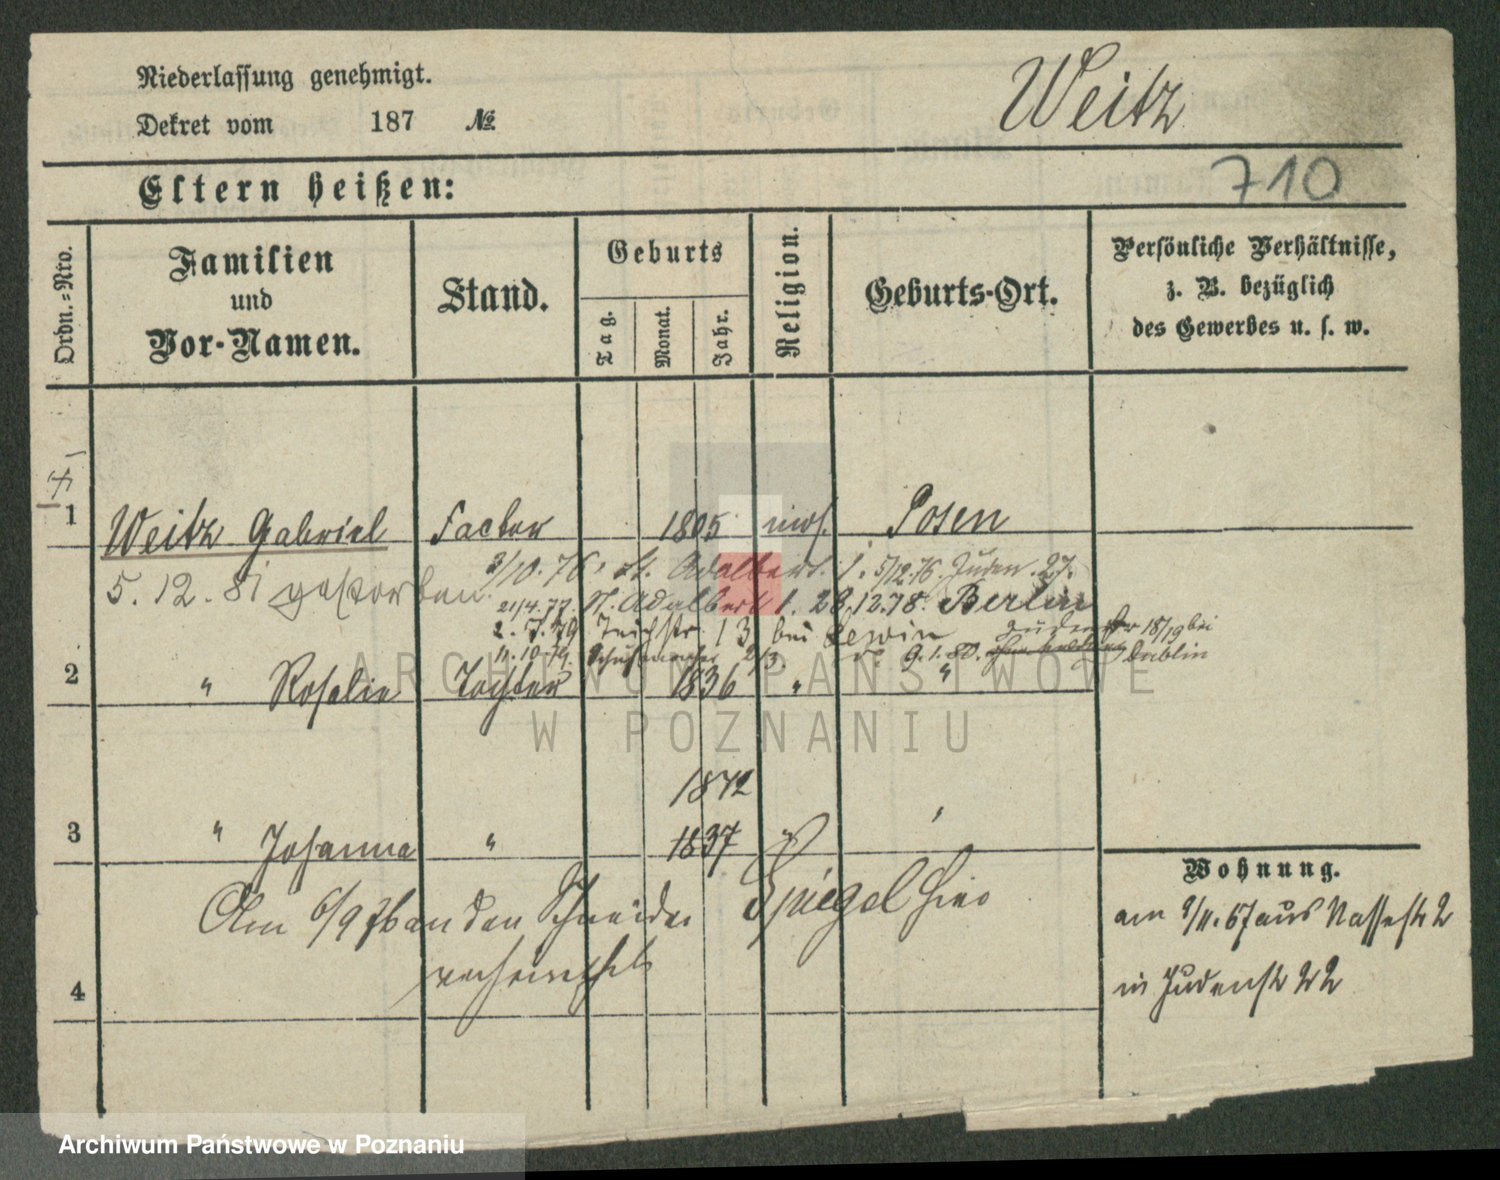 Niederlassung genehmigt.
Weitz
Dekret vom 187 №
710
Eltern heißen:
Ordn.=Nro.
Familien
und
Vor-Namen.
Stand.
Geburts
Tag.
Monat.
Jahr.
Religion.
Geburts-Ort.
Persönliche Verhältnisse,
z. B. bezüglich
des Gewerbes u. s. w.
1 Weitz Gabriel Factor 1805 mos. Posen
5. 12. 81 gestorben
3/10. 76. St. Adalbert. 1. 5/12 76. Juden. 27.
21/4. 77. St. Adalbert 1. 28.12.78. Berlin
2. 7. 79 Teichstr. 13 bei Lewin
18/19 bei
11. 10. 79. 2/3. 9. 1. 80. Lublin
2 " Rosalie Tochter 1836 " "
1842
3 " Johanna " 1837 " "
Am 6/9 76 an den Schneider Spiegel hier
verheirathet
4
Wohnung.
am 9/11. 67 aus Nassestr 2
in Judenstr 22
ARCHIWUM PAŃSTWOWE
W POZNANIU
Archiwum Państwowe w Poznaniu